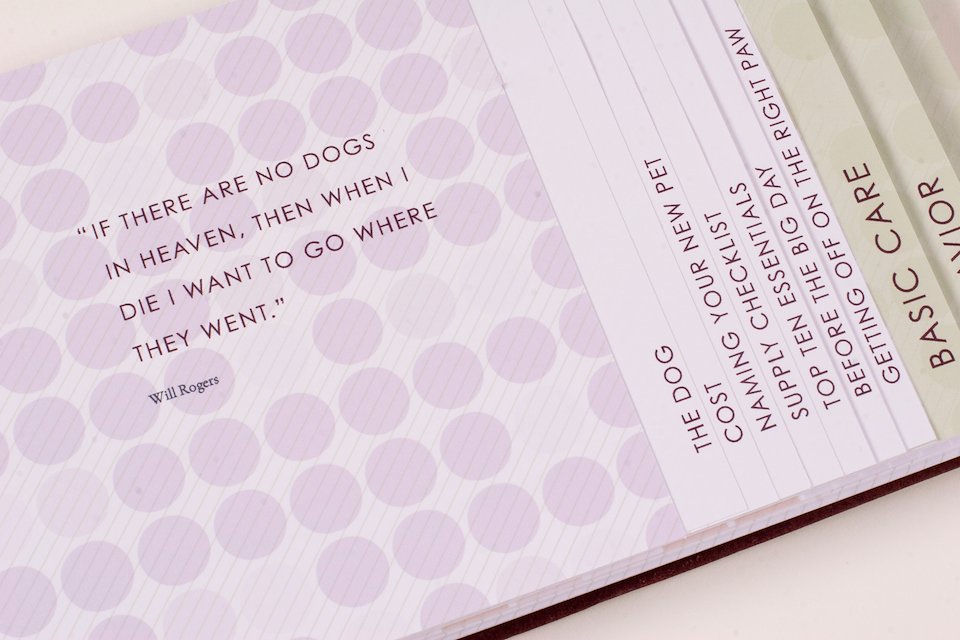 “IF THERE ARE NO DOGS
IN HEAVEN, THEN WHEN I
DIE I WANT TO GO WHERE
THEY WENT.”
Will Rogers
THE DOG
COST
NAMING YOUR NEW PET
SUPPLY CHECKLIST
TOP TEN ESSENTIALS
BEFORE THE BIG DAY
GETTING OFF ON THE RIGHT PAW
BASIC CARE